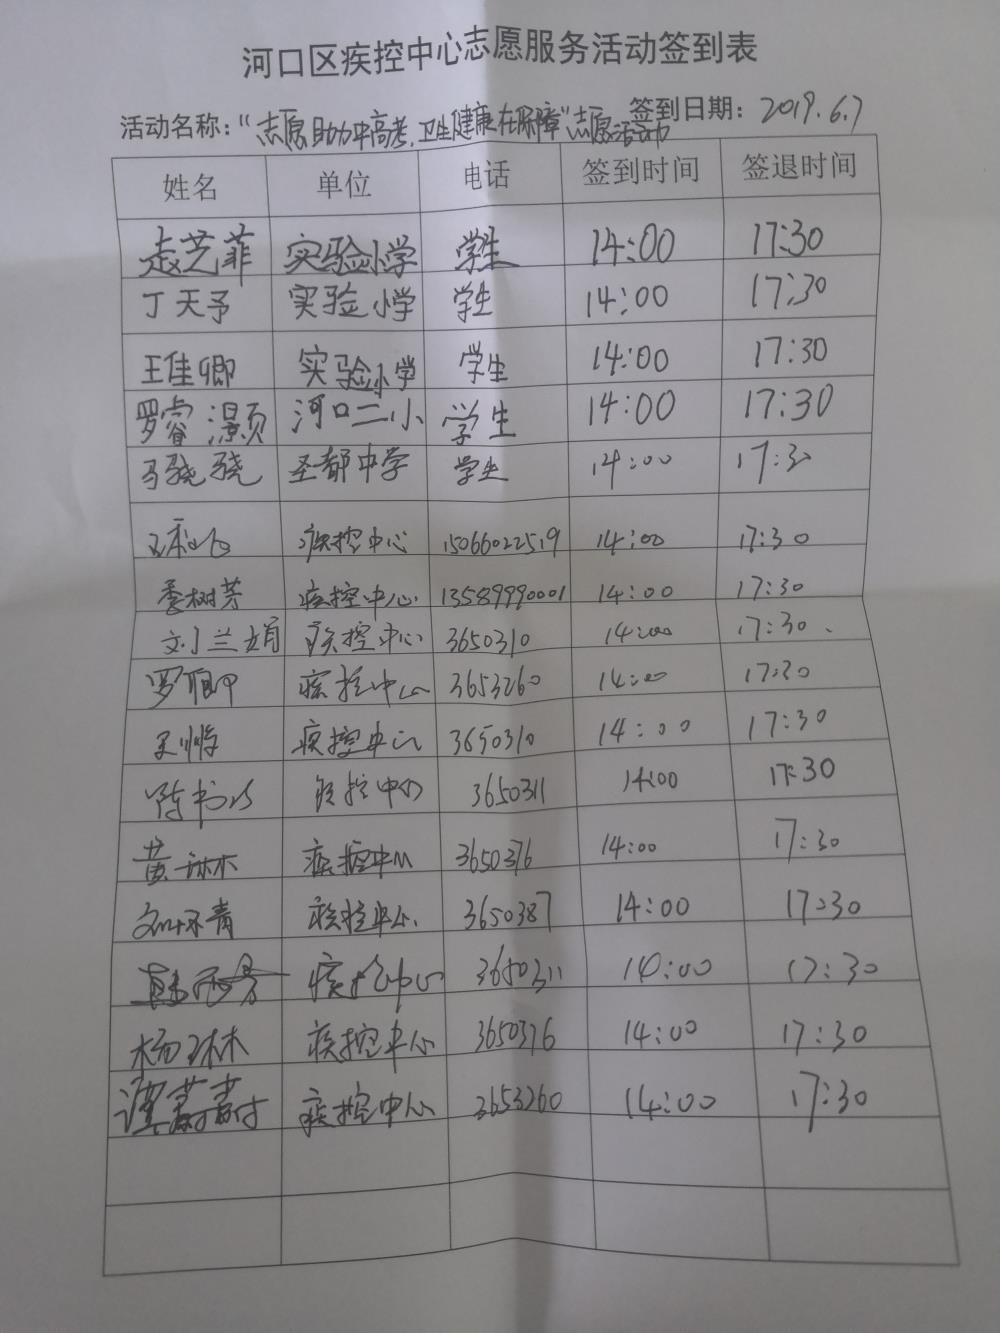 河口区疾控中心志愿服务活动签到表
活动名称："志愿助力中高考,卫生健康在保障"志愿活动 签到日期：2019.6.7
姓名 单位 电话 签到时间 签退时间
赵艺菲 实验小学 学生 14:00 17:30
丁天予 实验小学 学生 14:00 17:30
王佳卿 实验小学 学生 14:00 17:30
罗睿灏 河口二小 学生 14:00 17:30
马骁骁 圣都中学 学生 14:00 17:30
疾控中心 15066022519 14:00 17:30
季树芳 疾控中心 13589990001 14:00 17:30
刘兰娟 疾控中心 3650310 14:00 17:30
疾控中心 3653260 14:00 17:30
疾控中心 3650310 14:00 17:30
疾控中心 3650311 14:00 17:30
黄琳 疾控中心 3650376 14:00 17:30
疾控中心 3650387 14:00 17:30
疾控中心 3650311 14:00 17:30
杨琳 疾控中心 3650376 14:00 17:30
疾控中心 3653260 14:00 17:30